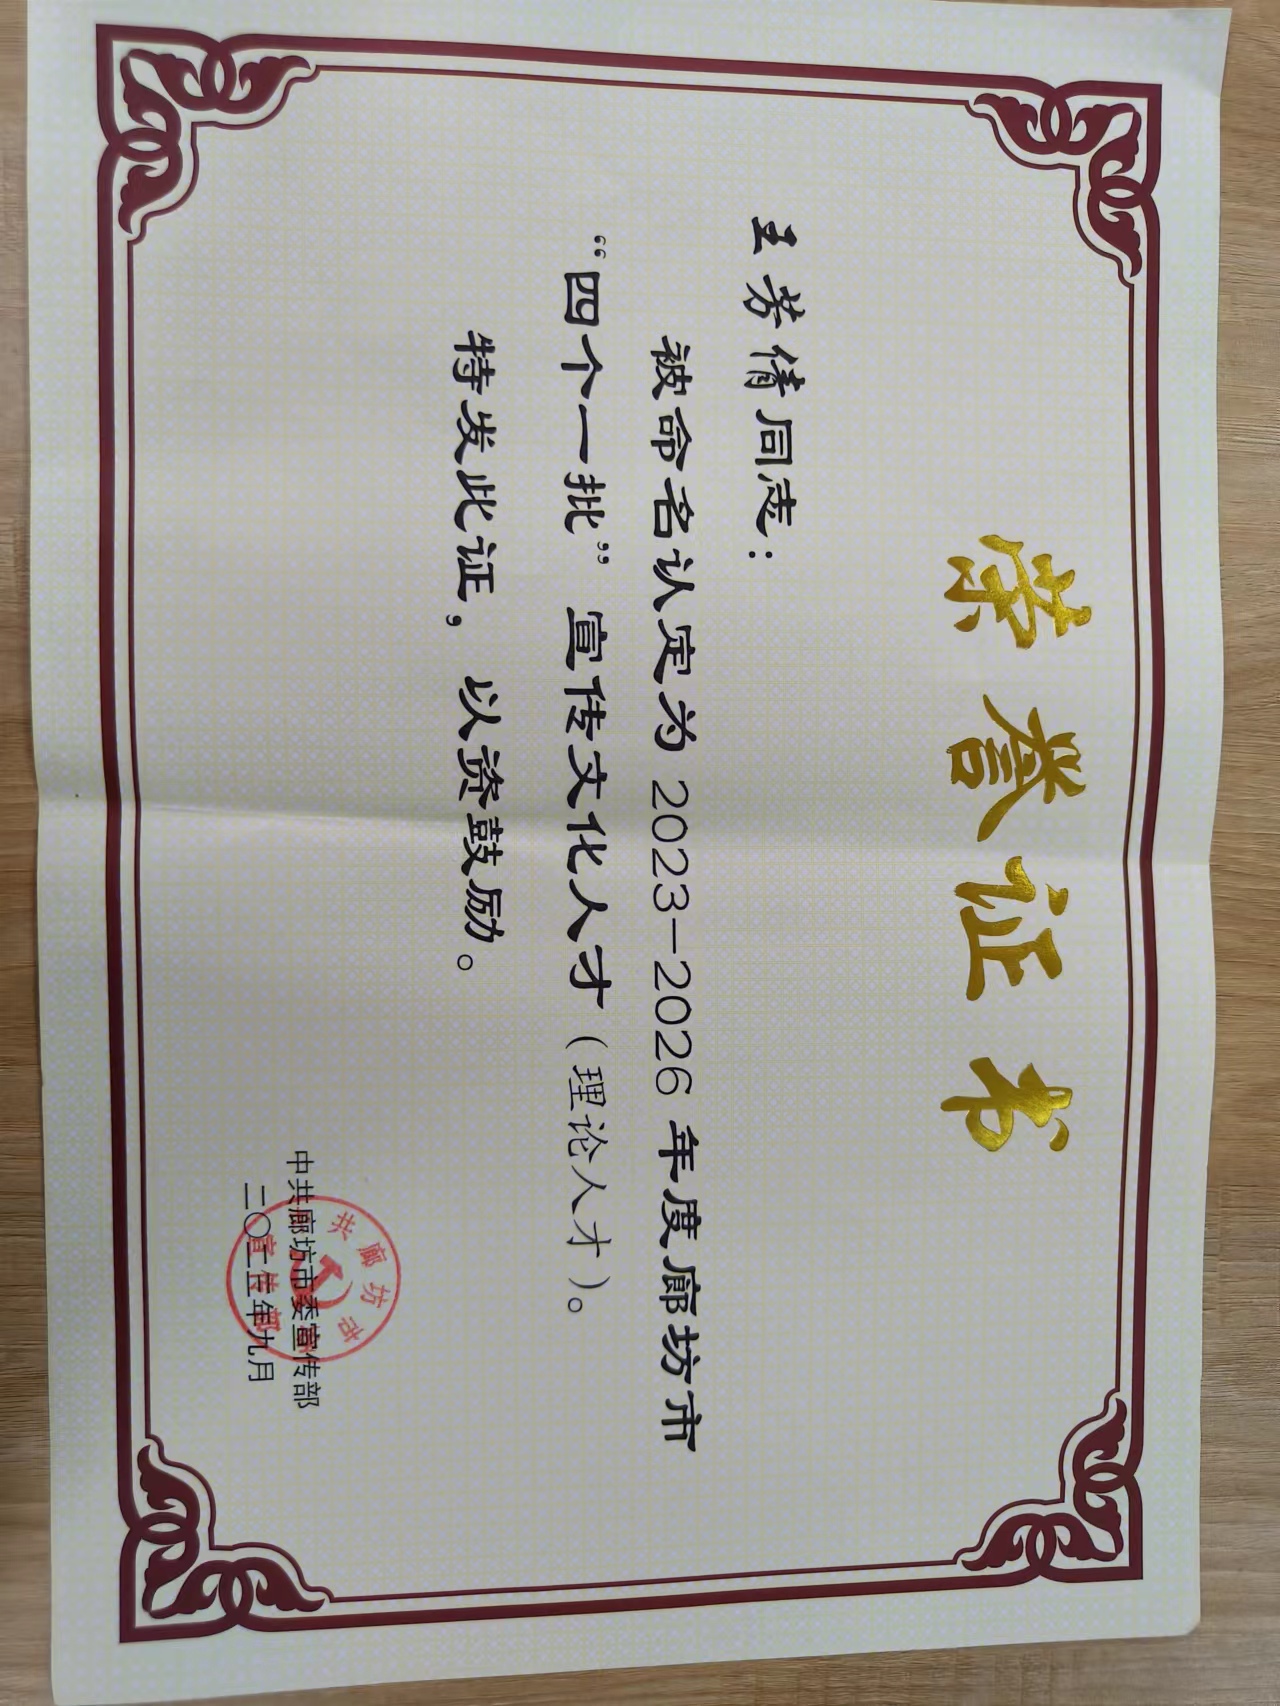 荣誉证书
王芳倩同志：
被命名认定为2023-2026年度廊坊市
“四个一批”宣传文化人才（理论人才）。
特发此证，以资鼓励。
中共廊坊市委宣传部
二〇二五年九月